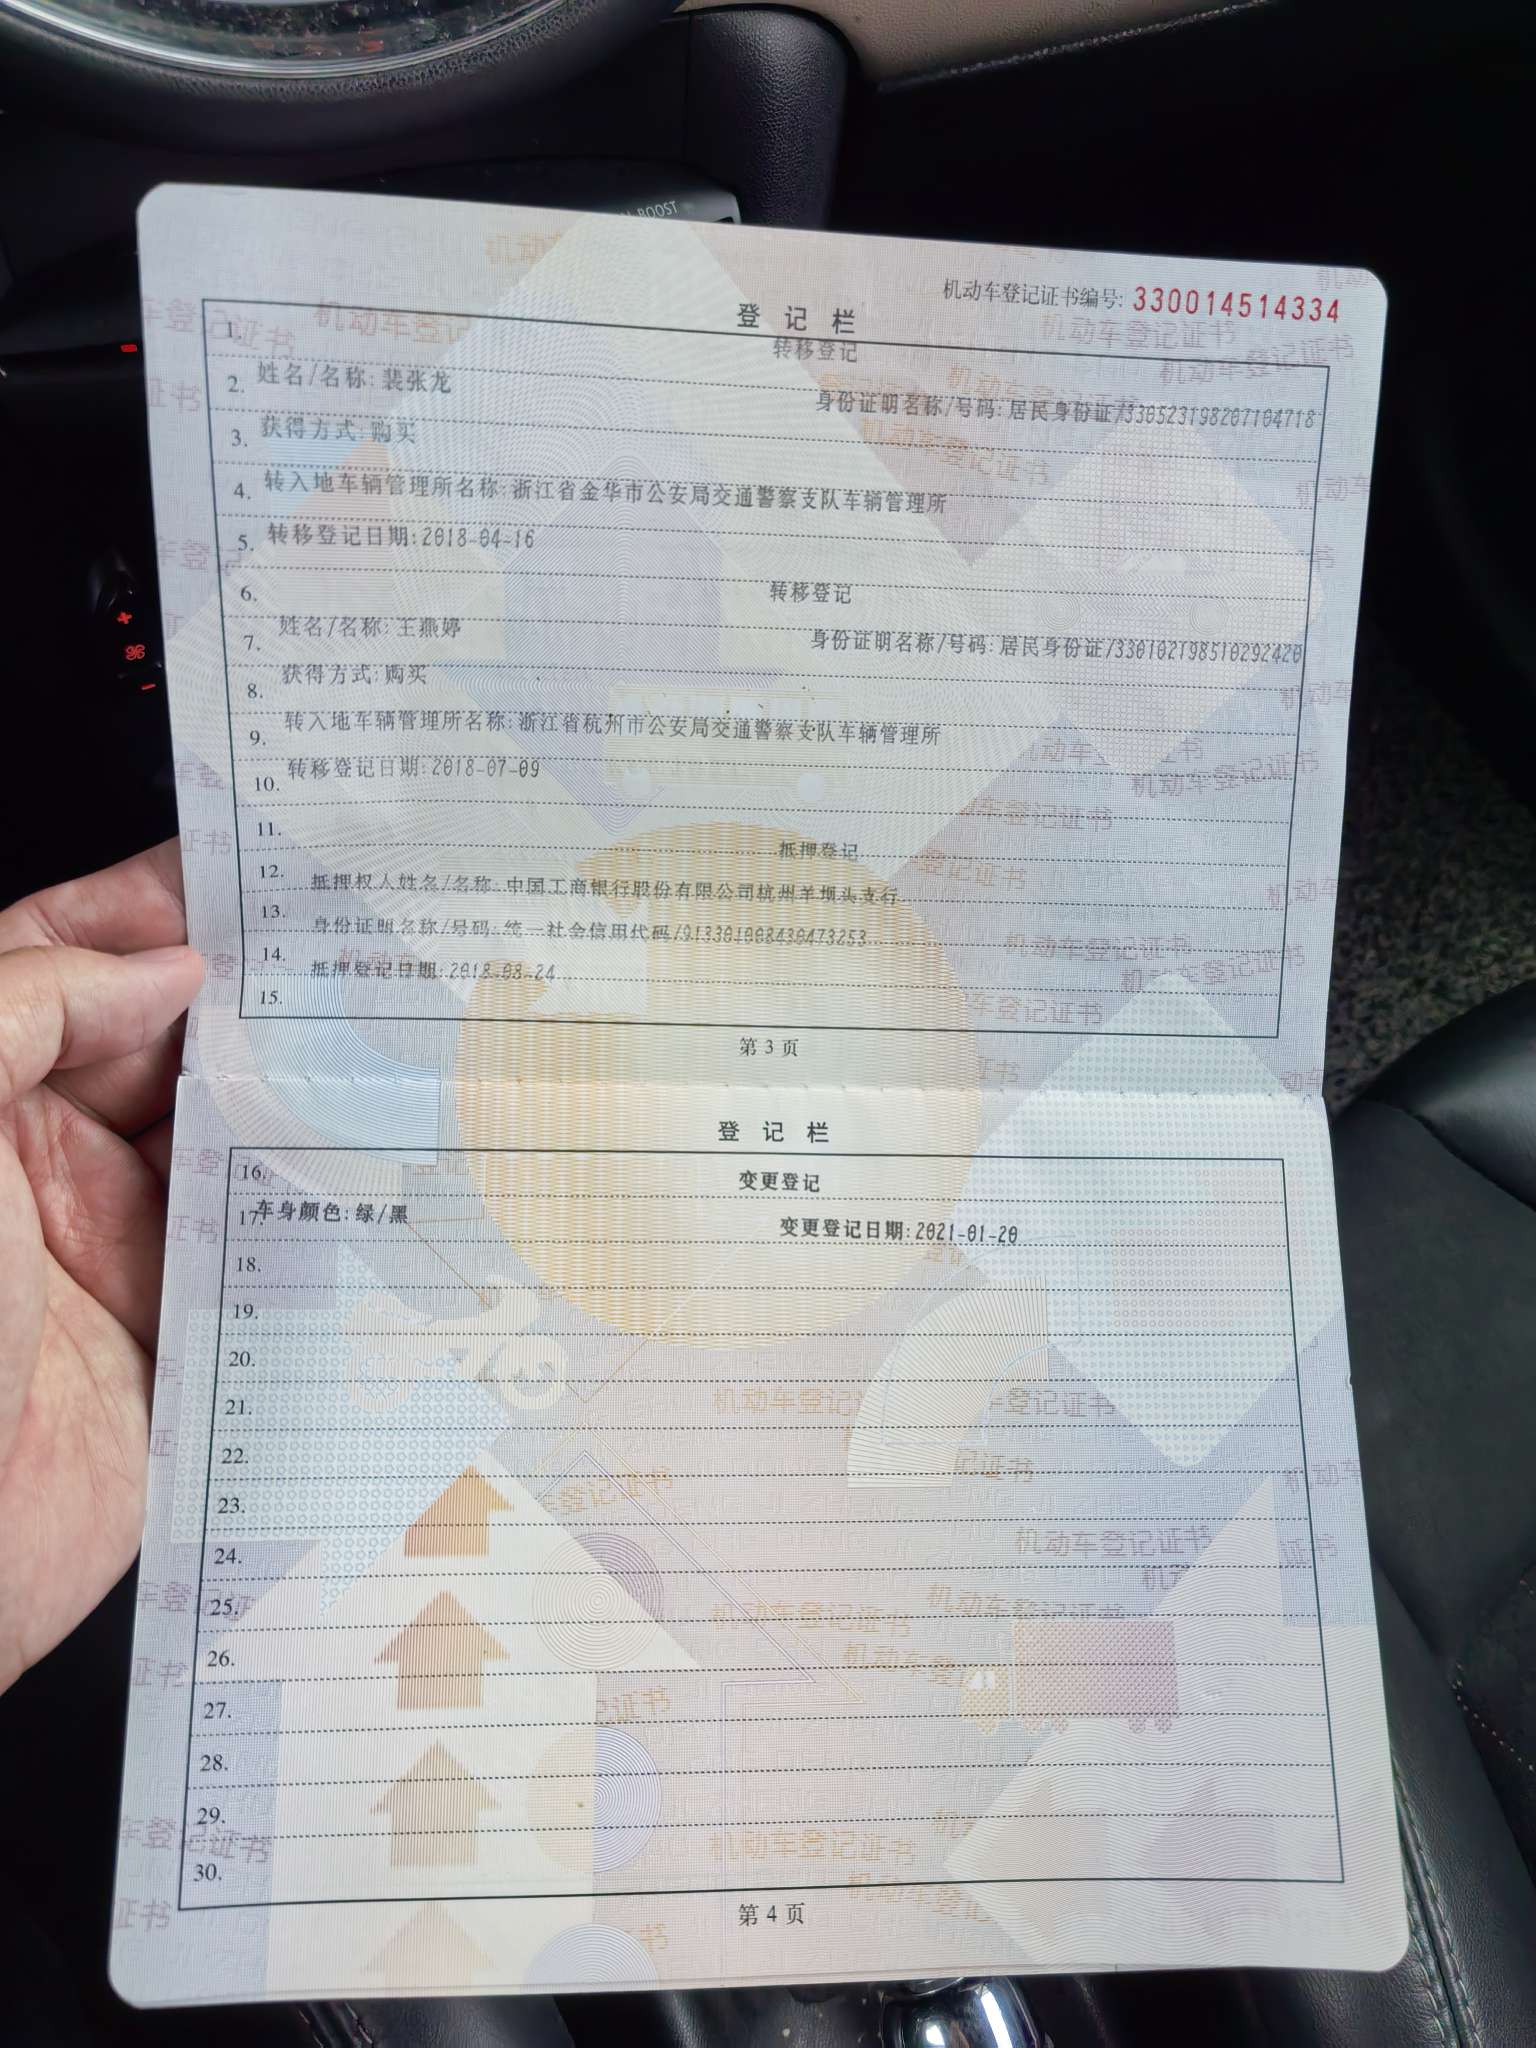 BOOST
机动车登记证书编号: 330014514334
登 记 栏
1. 转移登记
2. 姓名/名称: 裴张龙 身份证明名称/号码: 居民身份证/330523198207104718
3. 获得方式: 购买
4. 转入地车辆管理所名称: 浙江省金华市公安局交通警察支队车辆管理所
5. 转移登记日期: 2018-04-16
6. 转移登记
7. 姓名/名称: 王燕婷 身份证明名称/号码: 居民身份证/330102198510292420
8. 获得方式: 购买
9. 转入地车辆管理所名称: 浙江省杭州市公安局交通警察支队车辆管理所
10. 转移登记日期: 2018-07-09
11. 抵押登记
12. 抵押权人姓名/名称: 中国工商银行股份有限公司杭州羊坝头支行
13. 身份证明名称/号码: 统一社会信用代码/913301008430473253
14. 抵押登记日期: 2018-08-24
15.
第 3 页
登 记 栏
16. 变更登记
17. 车身颜色: 绿/黑 变更登记日期: 2021-01-20
18.
19.
20.
21.
22.
23.
24.
25.
26.
27.
28.
29.
30.
第 4 页